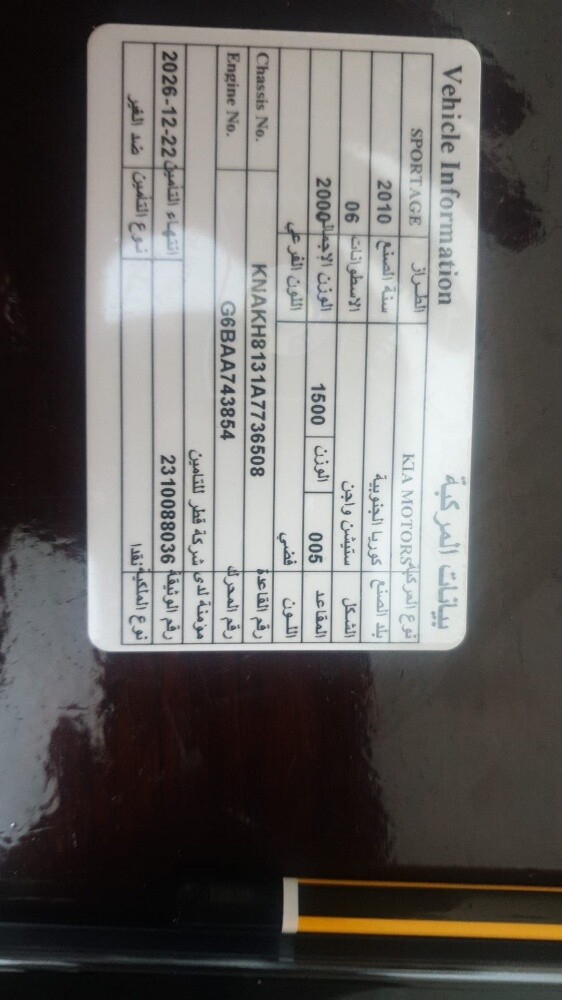 Vehicle Information بيانات المركبة
نوع المركبة KIA MOTORS الطراز SPORTAGE
بلد الصنع كوريا الجنوبية سنة الصنع 2010
الشكل ستيشن واجن الاسطوانات 06
المقاعد 005 الوزن 1500 الوزن الإجمالي 2000
اللـــون فضي اللون الفرعي
رقم القاعدة KNAKH8131A7736508 Chassis No.
رقم المحرك G6BAA743854 Engine No.
مؤمنة لدى شركة قطر للتامين
رقم الوثيقة 2310088036 انتهاء التأمين 2026-12-22
نوع الملكية نقدا نوع التأمين ضد الغير